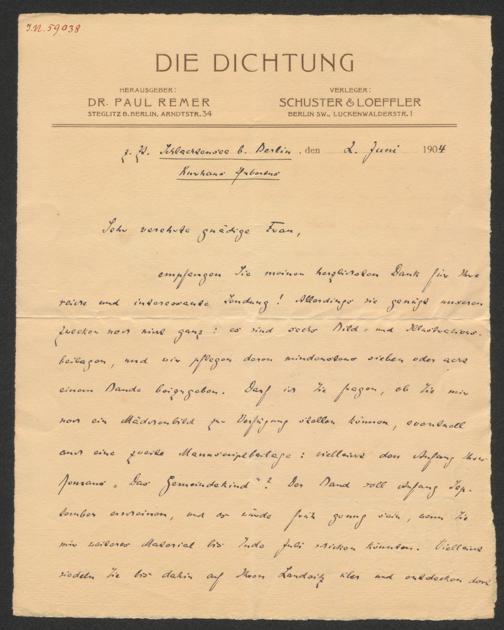 I.N. 59038
DIE DICHTUNG
HERAUSGEBER:
DR. PAUL REMER
STEGLITZ B. BERLIN, ARNDTSTR. 34
VERLEGER:
SCHUSTER & LOEFFLER
BERLIN SW., LUCKENWALDERSTR. 1
z. Zt. Schlachtensee b. Berlin, den 2. Juni 1904
Kurhaus Hubertus
Sehr verehrte gnädige Frau,
empfangen Sie meinen herzlichsten Dank für Ihre
reiche und interessante Sendung! Allerdings sie genügt unseren
Zwecken noch nicht ganz: es sind sechs Bild- und Illustrations-
beilagen, und wir pflegen deren mindestens sieben oder acht
einem Bande beizugeben. Darf ich Sie fragen, ob Sie mir
noch ein Mädchenbild zur Verfügung stellen können, eventuell
auch eine zweite Manuscriptbeilage: vielleicht den Anfang Ihres
Romans „Das Gemeindekind"? Der Band soll Anfang Sep-
tember erscheinen, und es würde früh genug sein, wenn Sie
mir weiteres Material bis Ende Juli schicken könnten. Vielleicht
siedeln Sie bis dahin auf Ihren Landsitz über und entdecken dort